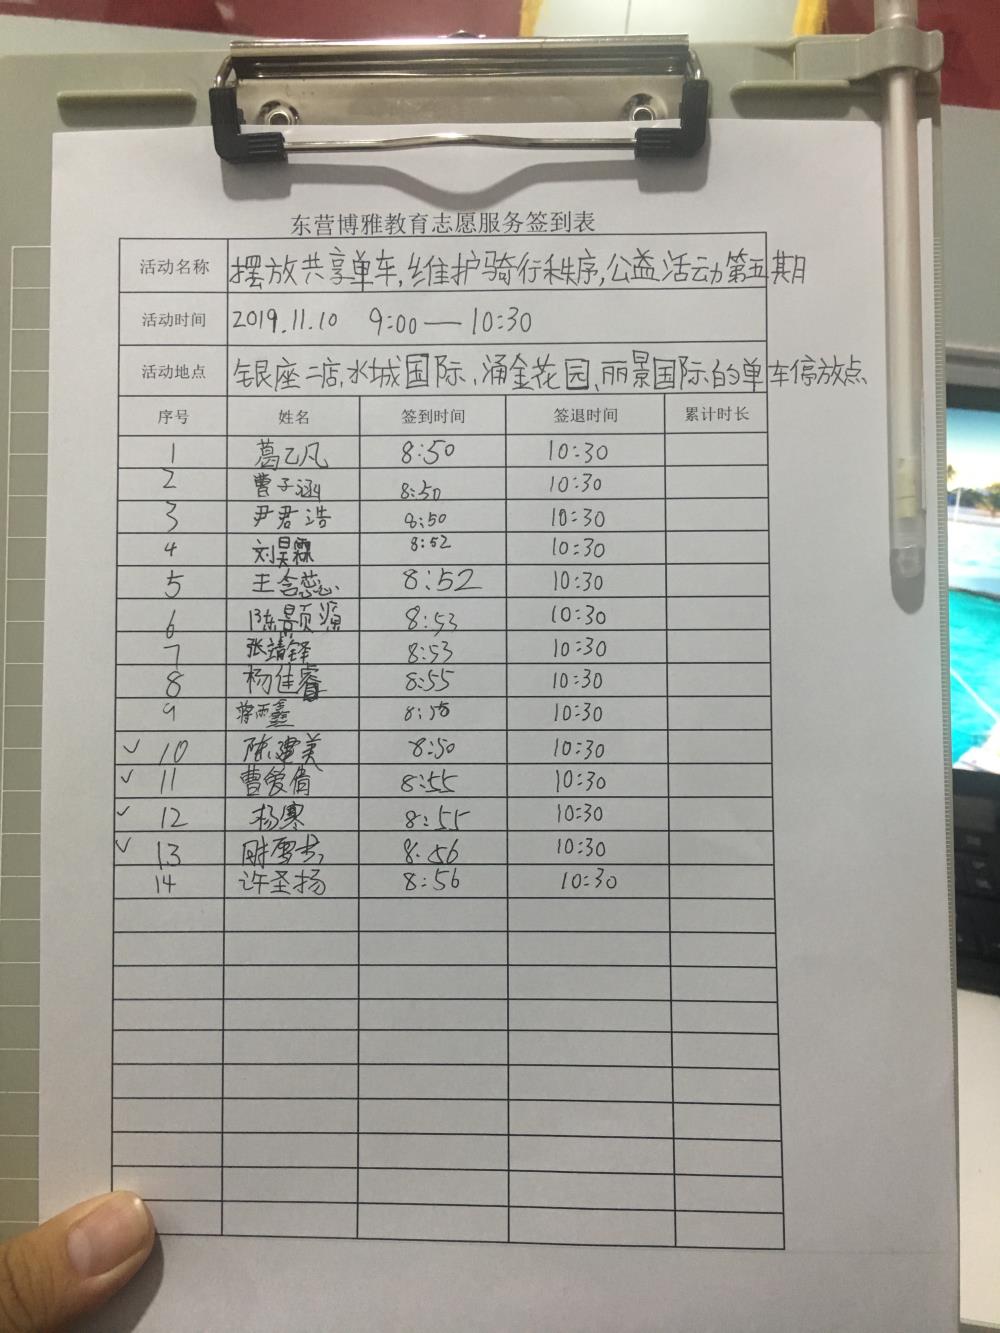 东营博雅教育志愿服务签到表
活动名称 摆放共享单车,维护骑行秩序,公益活动第五期
活动时间 2019.11.10 9:00—10:30
活动地点 银座二店、水城国际、涌金花园、丽景国际的单车停放点
序号 姓名 签到时间 签退时间 累计时长
1 葛乙凡 8:50 10:30
2 曹子涵 8:50 10:30
3 尹君浩 8:50 10:30
4 刘昊霖 8:52 10:30
5 王含蕊 8:52 10:30
6 陈景源 8:53 10:30
7 张靖铎 8:53 10:30
8 杨佳睿 8:55 10:30
9 雨鑫 10:30
10 陈建美 8:50 10:30
11 曹爱倩 8:55 10:30
12 杨寒 8:55 10:30
13 8:56 10:30
14 许圣扬 8:56 10:30